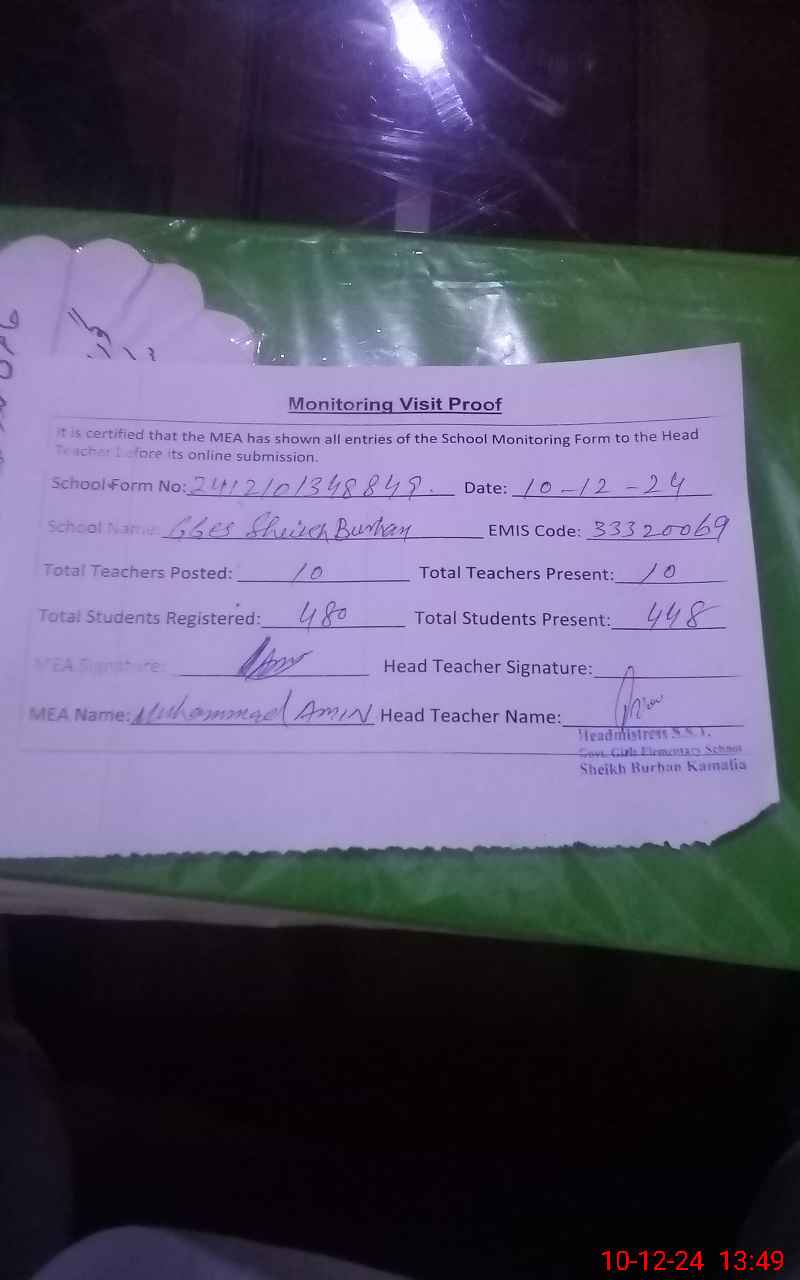 Monitoring Visit Proof
It is certified that the MEA has shown all entries of the School Monitoring Form to the Head
Teacher before its online submission.
School Form No: 2412101348849. Date: 10-12-24
School Name: GGES Sheikh Burhan EMIS Code: 33320069
Total Teachers Posted: 10 Total Teachers Present: 10
Total Students Registered: 480 Total Students Present: 448
MEA Signature: Head Teacher Signature:
MEA Name: Muhammad AMIN Head Teacher Name:
Headmistress S.S.T.
Govt. Girls Elementary School
Sheikh Burhan Kamalia
10-12-24 13:49